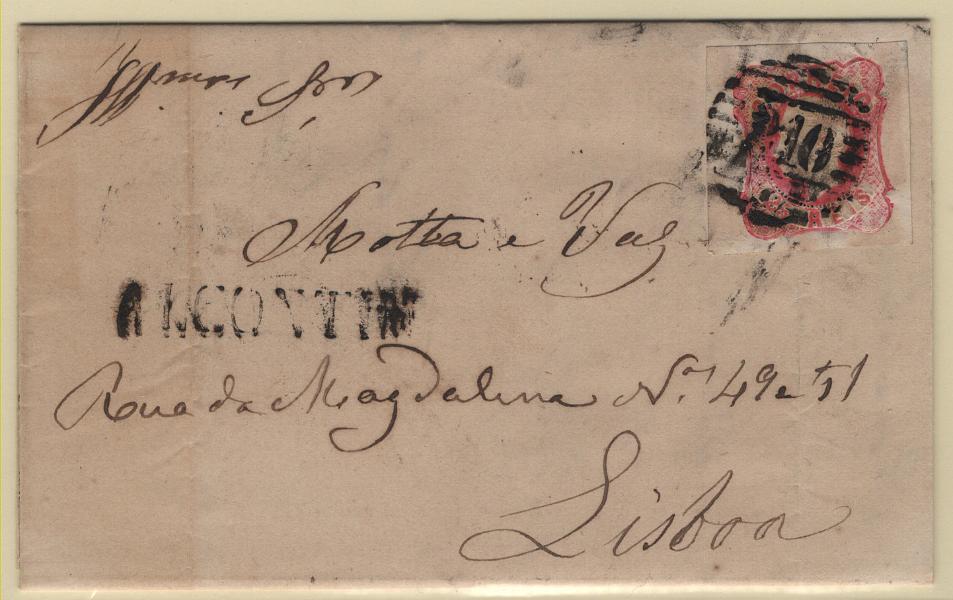 Illmos Snrs
10
REIS
Motta e Vaz
ALCOUTIM
Rua da Magdalena Nos 49 e 51
Lisboa